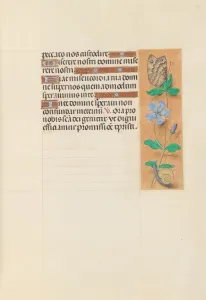 peccato nos custodire
Miserere nostri domine mise
rere nostri
Fiat misericordia tua domi
ne super nos quemadmodum
speravimus in te
In te domine speravi non
confundar in eternum ℣ Ora pro
nobis sancta dei genitrix ut digni
efficiamur promissione xpristi